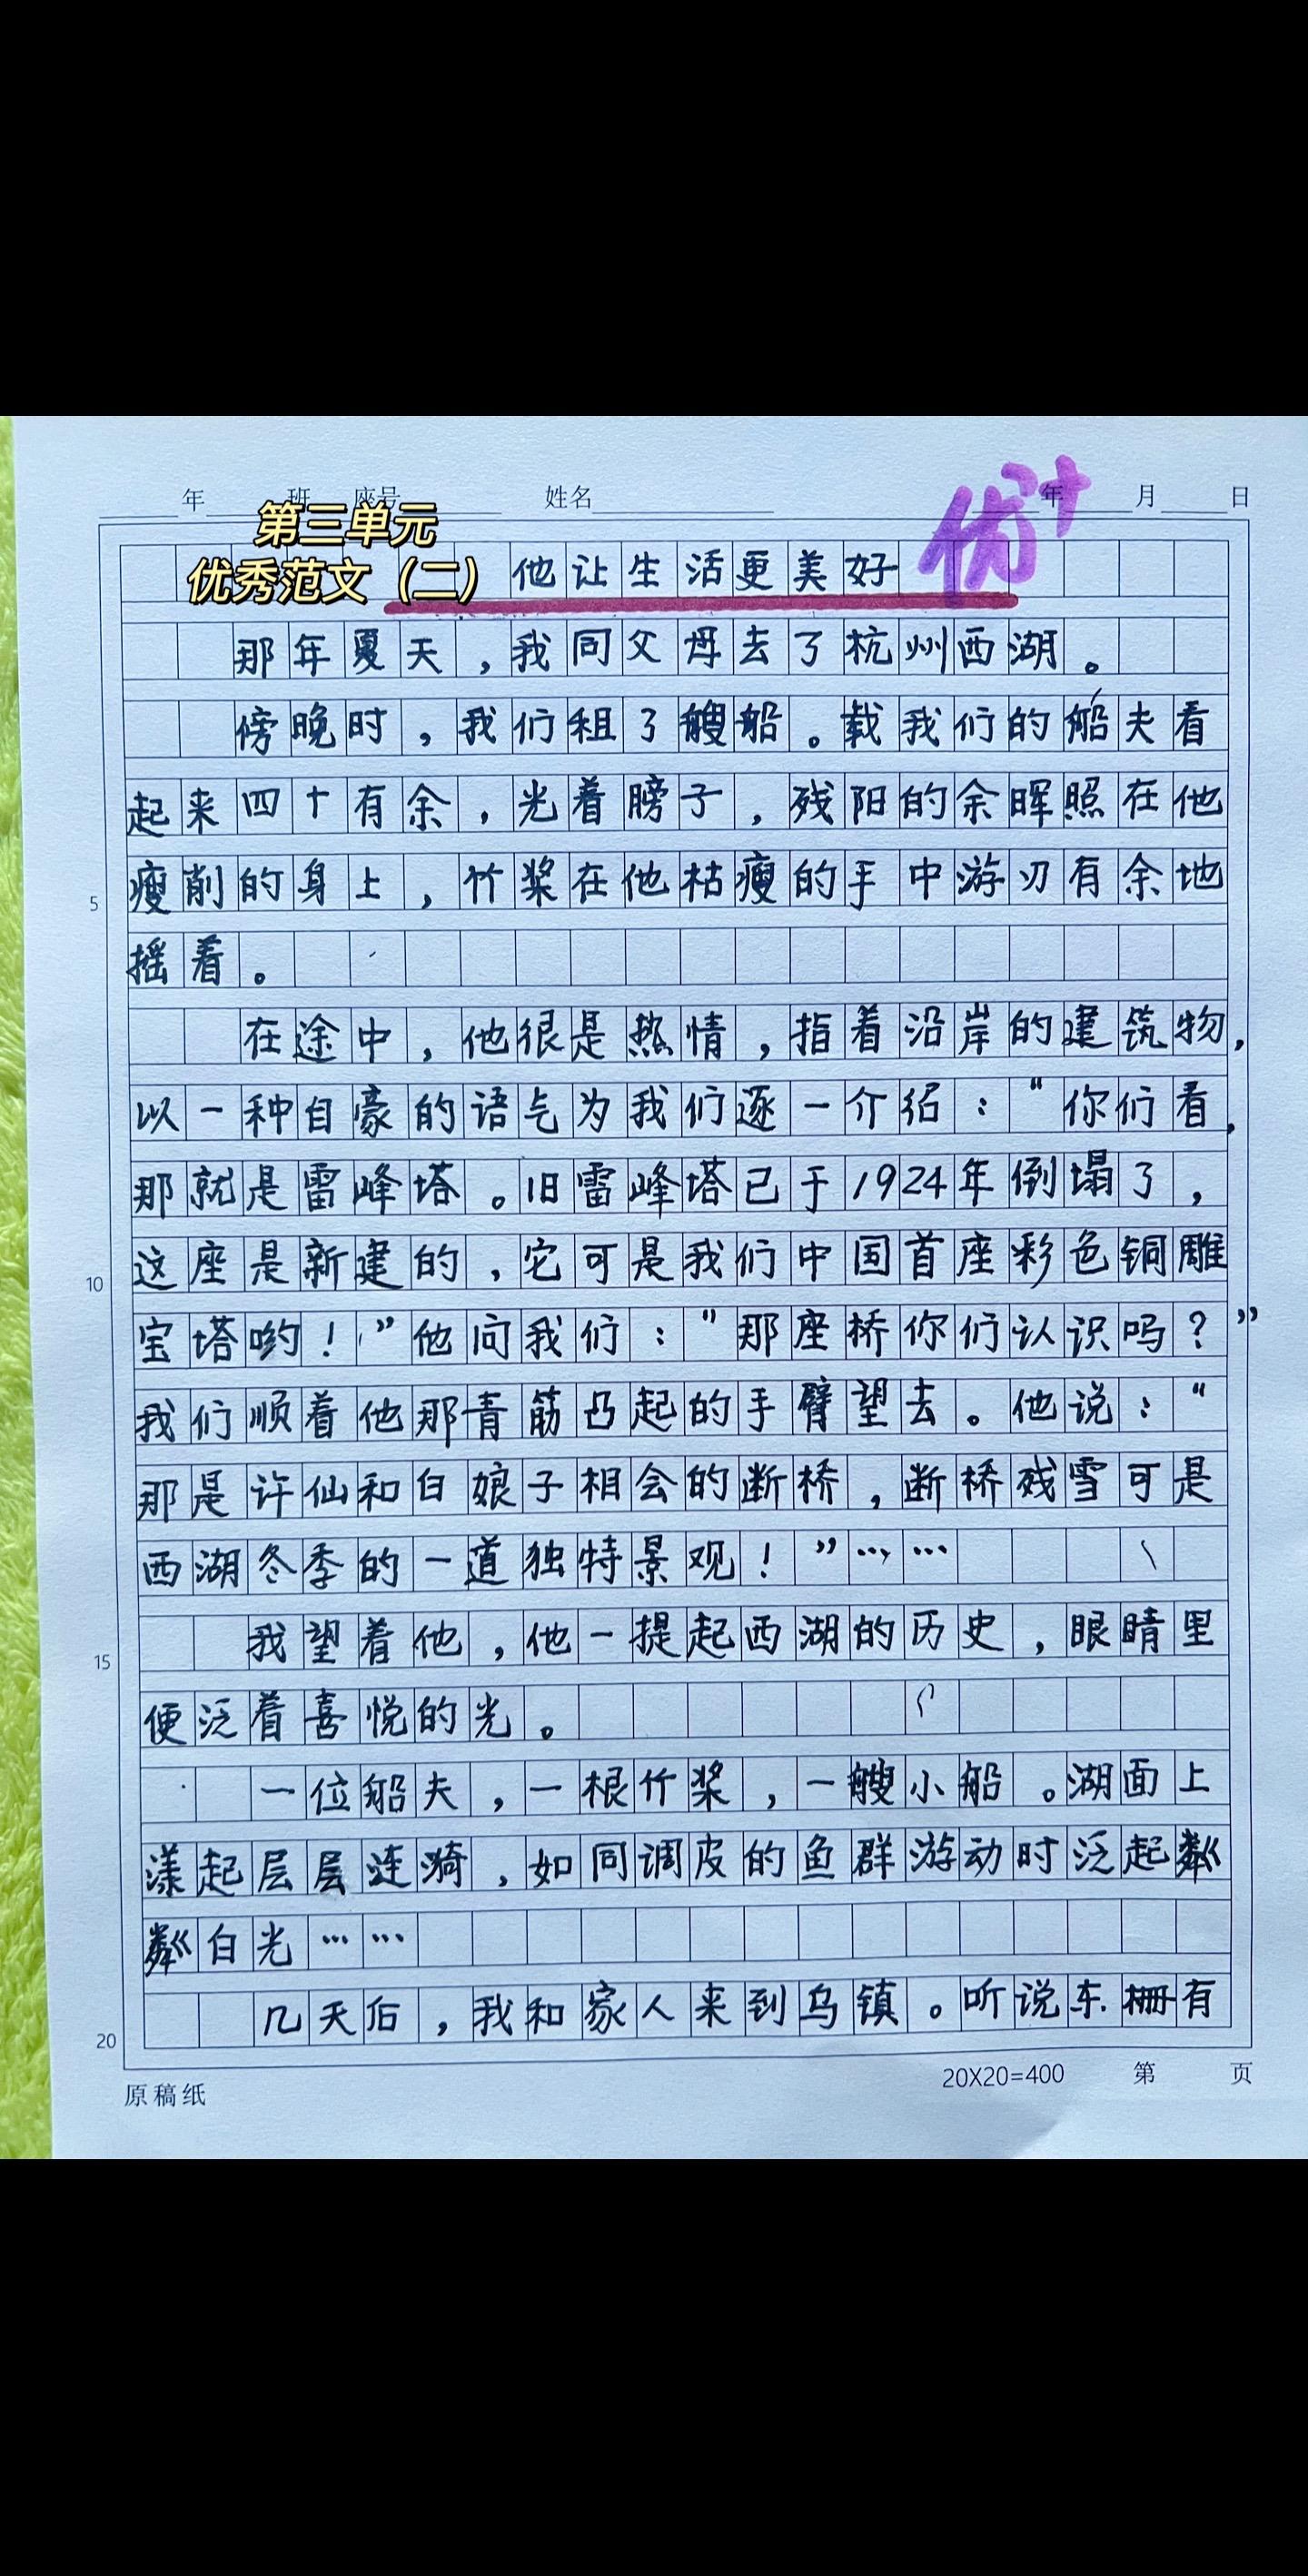 年 班 座号 姓名 年 月 日
优+
第三单元
优秀范文（二） 他让生活更美好
那年夏天，我同父母去了杭州西湖。
傍晚时，我们租了艘船。载我们的船夫看
起来四十有余，光着膀子，残阳的余晖照在他
瘦削的身上，竹桨在他枯瘦的手中游刃有余地
5
摇着。
在途中，他很是热情，指着沿岸的建筑物，
以一种自豪的语气为我们逐一介绍：“你们看，
那就是雷峰塔。旧雷峰塔已于1924年倒塌了，
这座是新建的，它可是我们中国首座彩色铜雕
10
宝塔哟！”他问我们：“那座桥你们认识吗？”
我们顺着他那青筋凸起的手臂望去。他说：“
那是许仙和白娘子相会的断桥，断桥残雪可是
西湖冬季的一道独特景观！”……
我望着他，他一提起西湖的历史，眼睛里
15
便泛着喜悦的光。
一位船夫，一根竹桨，一艘小船。湖面上
漾起层层涟漪，如同调皮的鱼群游动时泛起粼
粼白光……
几天后，我和家人来到乌镇。听说东栅有
20
原稿纸 20X20=400 第 页